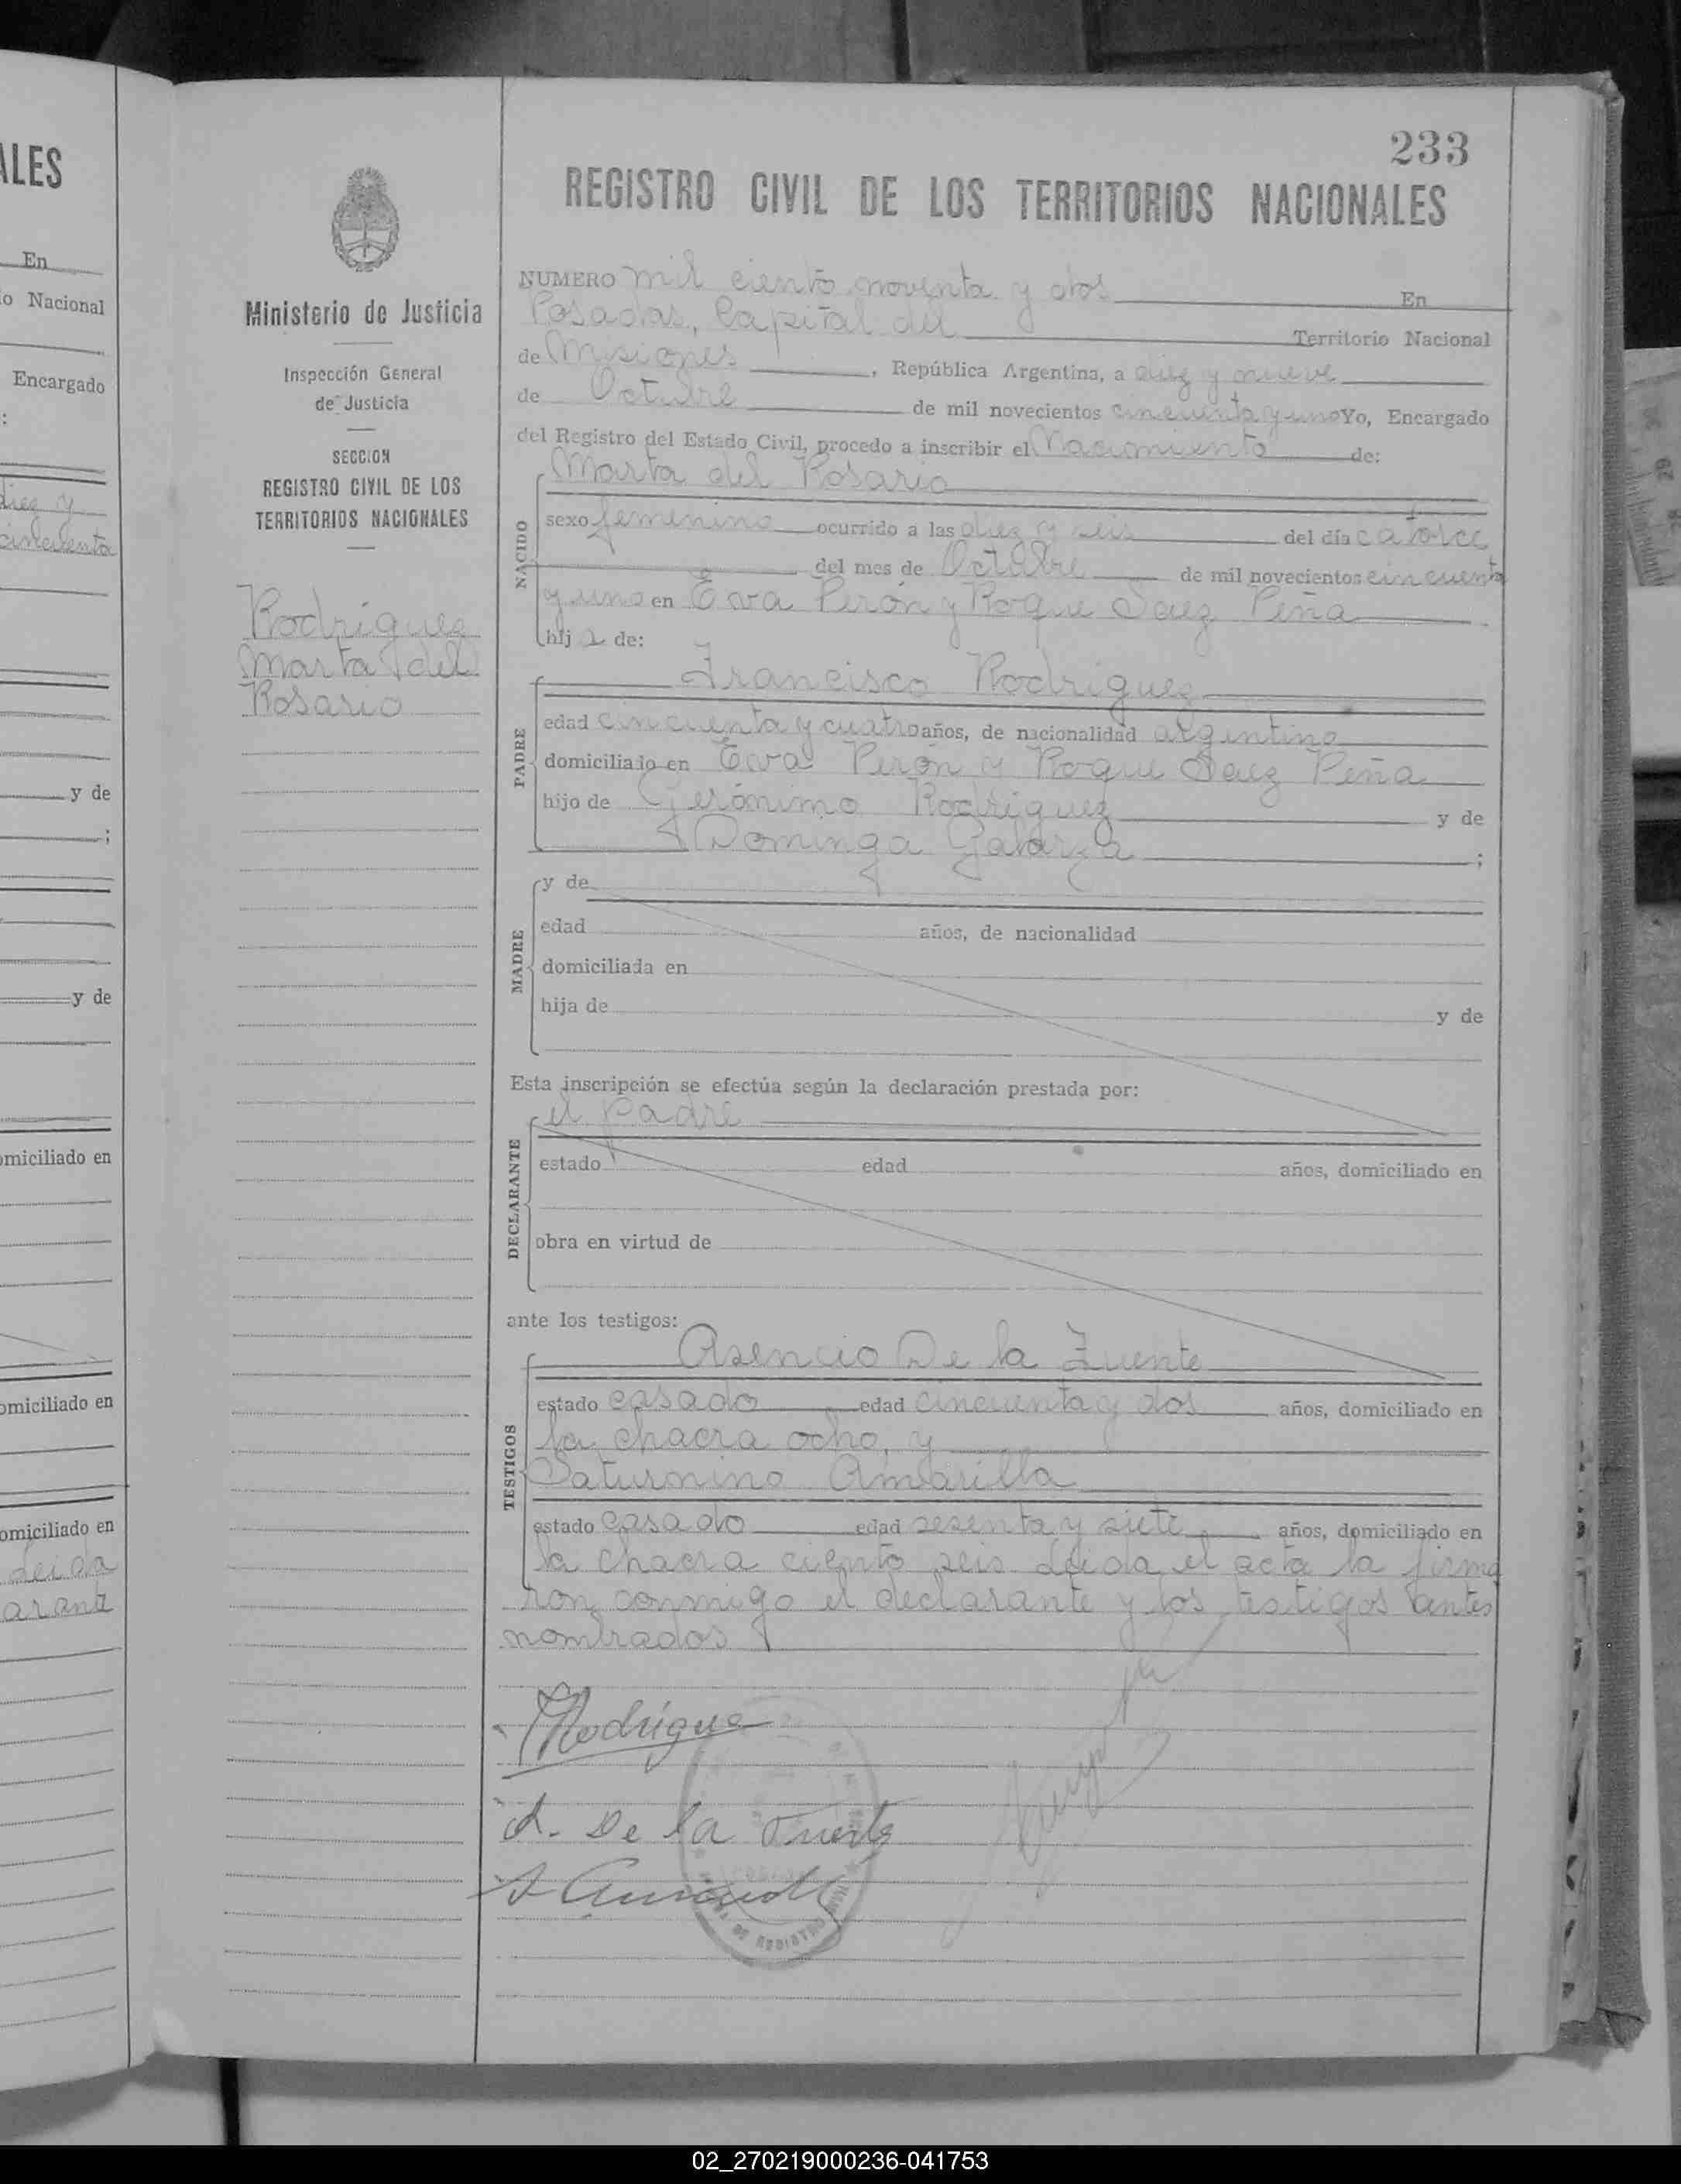 ALES
En
o Nacional
Encargado
:
diez y
cincuenta
y de
;
y de
omiciliado en
omiciliado en
omiciliado en
leida
arant
Ministerio de Justicia
Inspección General
de Justicia
SECCION
REGISTRO CIVIL DE LOS
TERRITORIOS NACIONALES
Rodríguez
Marta del
Rosario
233
REGISTRO CIVIL DE LOS TERRITORIOS NACIONALES
NUMERO mil ciento noventa y dos En
Posadas, Capital del Territorio Nacional
de Misiones, República Argentina, a diez y nueve
de Octubre de mil novecientos cincuenta y uno Yo, Encargado
del Registro del Estado Civil, procedo a inscribir el Nacimiento de:
Marta del Rosario
NACIDO
sexo femenino ocurrido a las diez y seis del día catorce
del mes de Octubre de mil novecientos cincuenta
y uno en Eva Perón y Roque Saez Peña
hij a de:
Francisco Rodríguez
PADRE
edad cincuenta y cuatro años, de nacionalidad argentino
domiciliado en Eva Perón y Roque Saez Peña
hijo de Gerónimo Rodríguez y de
Dominga Galarza ;
y de
MADRE
edad años, de nacionalidad
domiciliada en
hija de y de
Esta inscripción se efectúa según la declaración prestada por:
el padre
DECLARANTE
estado edad años, domiciliado en
obra en virtud de
ante los testigos:
Asencio De la Fuente
TESTIGOS
estado casado edad cincuenta y dos años, domiciliado en
la chacra ocho, y
Saturnino Amarilla
estado casado edad sesenta y siete años, domiciliado en
la chacra ciento seis. Leida el acta la firma
ron conmigo el declarante y los testigos antes
nombrados
Rodrígue
A. De la Fuente
02_270219000236-041753